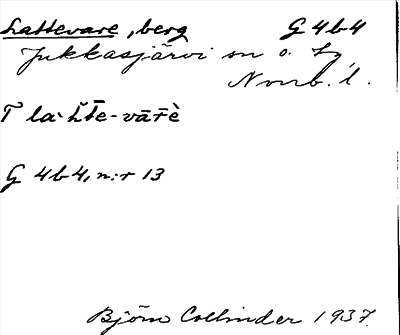 Lattevare, berg G 4b4
Jukkasjärvi sn o. Lg,
Norrb. l.
G 4b4, n:r 13
Björn Collinder 1937.